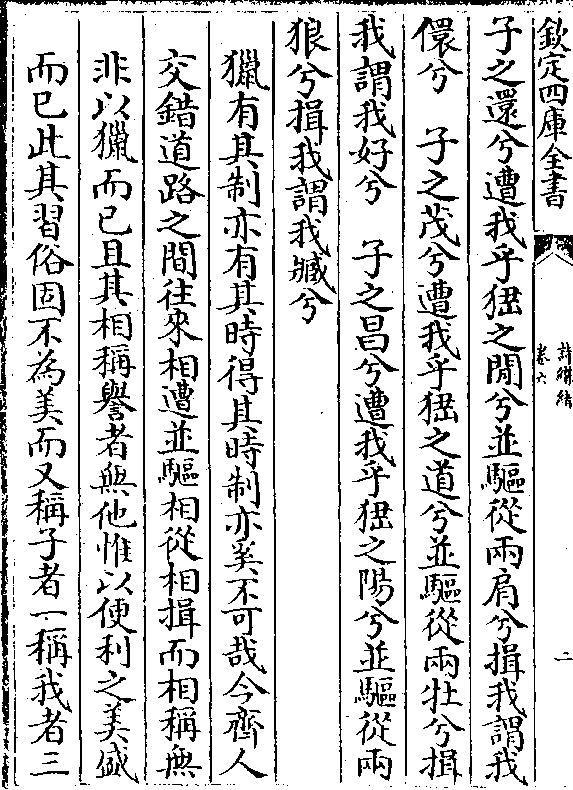 欽定四庫全書
詩纘緒
卷六
二
子之還兮遭我乎峱之閒兮並驅從兩肩兮揖我謂我
儇兮　子之茂兮遭我乎峱之道兮並驅從兩牡兮揖
我謂我好兮　子之昌兮遭我乎峱之陽兮並驅從兩
狼兮揖我謂我臧兮
獵有其制亦有其時得其時制亦奚不可哉今齊人
交錯道路之間往來相遭並驅相從相揖而相稱無
非以獵而已且其相稱譽者無他惟以便利之美盛
而已此其習俗固不為美而又稱子者一稱我者三